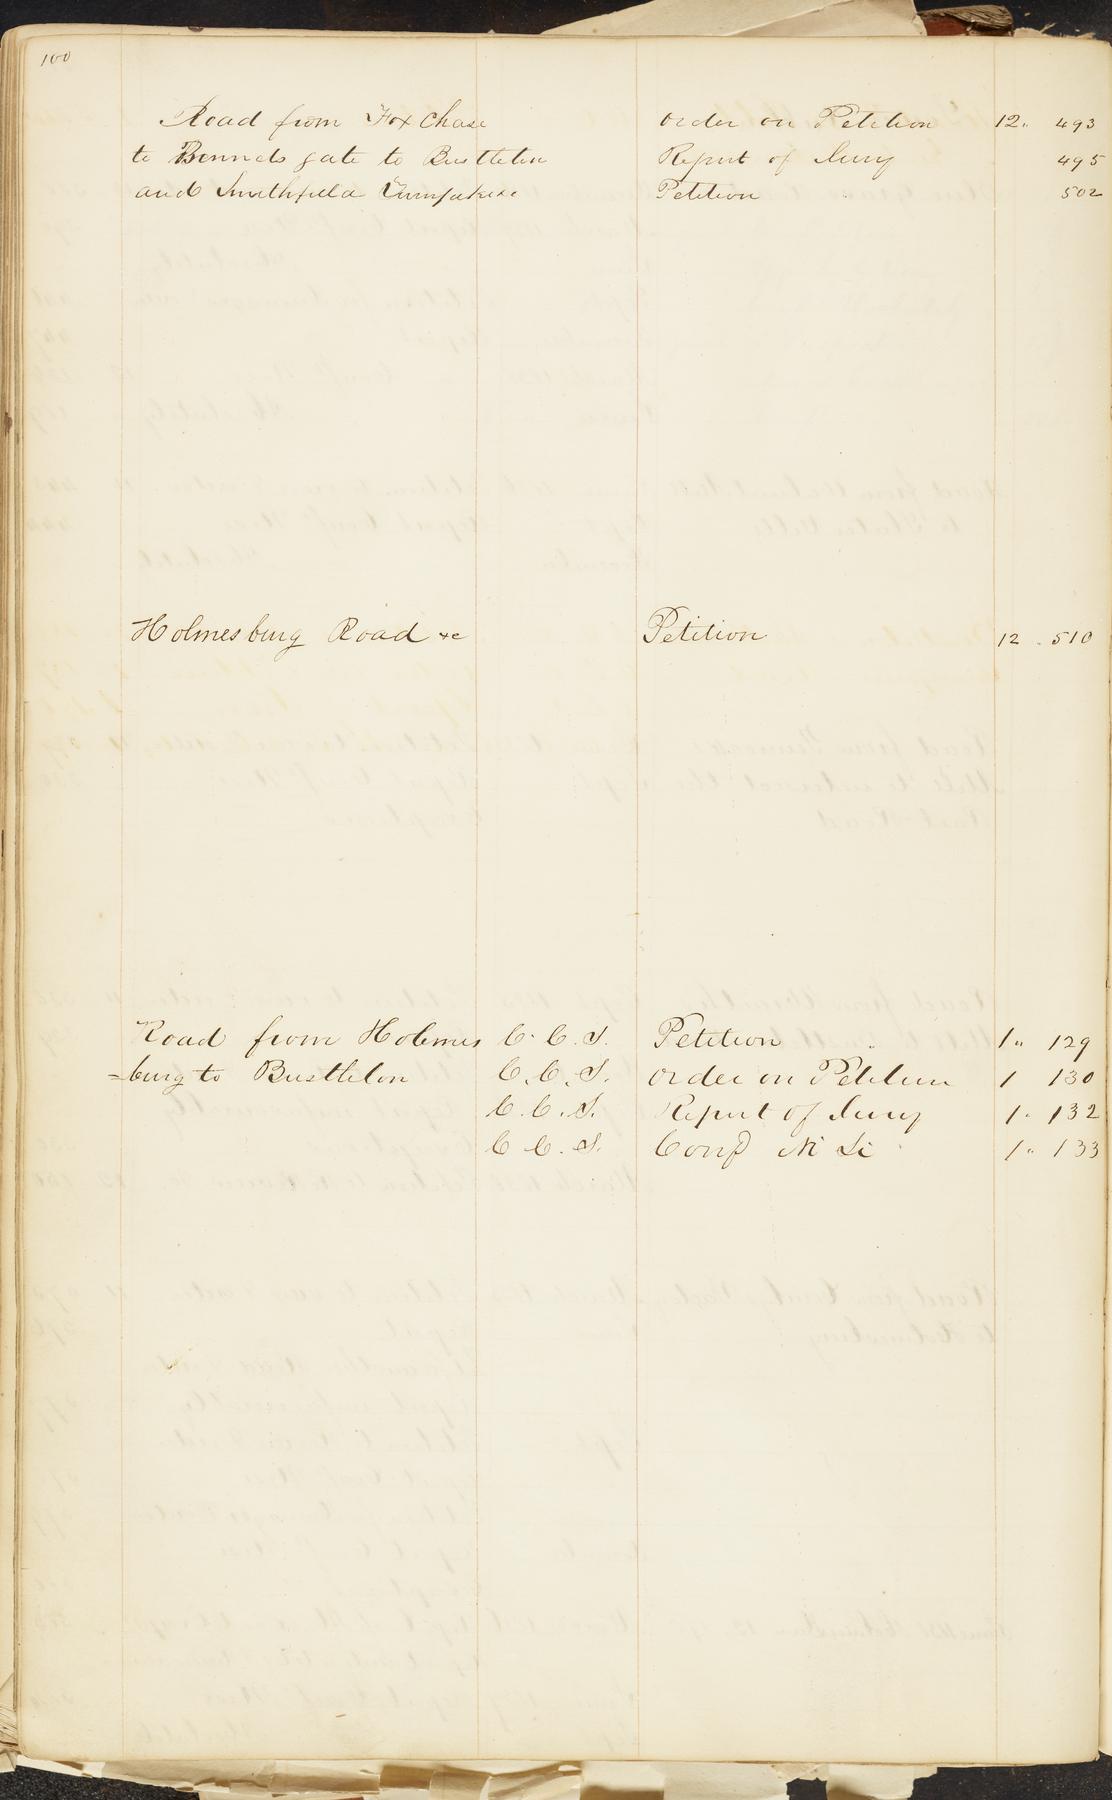 100
Road from Fox Chase order on Petition 12. 493
to Bennets gate to Bustleton Report of Jury 495
and Smithfield Turnpike &c Petition 502
Holmesburg Road &c Petition 12 . 510
Road from Holmes C. C. S. Petition 1 " 129
=burg to Bustleton C. C. S. order on Petition 1 130
C. C. S. Report of Jury 1 . 132
C C. S. Conf Ni Si 1 " 133